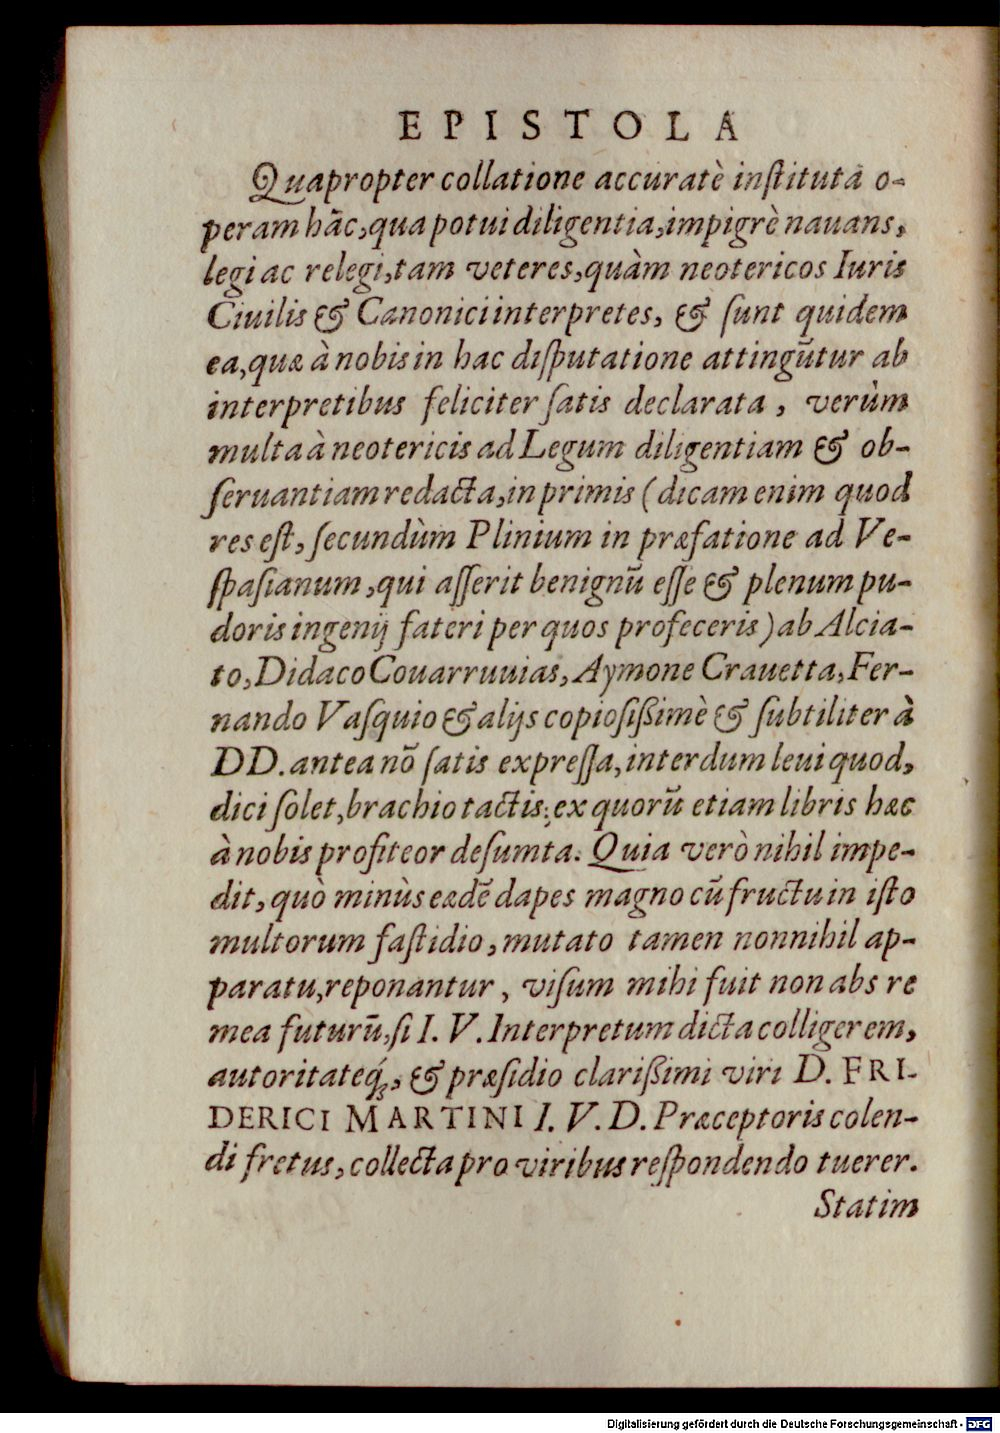 EPISTOLA
Quapropter collatione accuratè inſtituta o-
peram hãc, qua potui diligentia, impigrè nauans,
legi ac relegi, tam veteres, quàm neotericos Iuris
Ciuilis & Canonici interpretes, & ſunt quidem
ea, quæ à nobis in hac diſputatione attingũtur ab
interpretibus feliciter ſatis declarata, verùm
multa à neotericis ad Legum diligentiam & ob-
ſeruantiam redacta, inprimis (dicam enim quod
res eſt, ſecundùm Plinium in præfatione ad Ve-
ſpaſianum, qui aſſerit benignũ eſſe & plenum pu-
doris ingenij fateri per quos profeceris) ab Alcia-
to, Didaco Couarruuias, Aymone Crauetta, Fer-
nando Vaſquio & alijs copioſißimè & ſubtiliter à
DD. antea nõ ſatis expreſſa, interdum leui quod,
dici ſolet, brachio tactis: ex quorũ etiam libris hæc
à nobis profiteor deſumta. Quia verò nihil impe-
dit, quò minùs eædẽ dapes magno cũ fructu in iſto
multorum faſtidio, mutato tamen nonnihil ap-
paratu, reponantur, viſum mihi fuit non abs re
mea futurũ, ſi I. V. Interpretum dicta colligerem,
autoritateq́;, & præſidio clarißimi viri D. FRI-
DERICI MARTINI I. V. D. Præceptoris colen-
di fretus, collecta pro viribus reſpondendo tuerer.
Statim
Digitalisierung gefördert durch die Deutsche Forschungsgemeinschaft - DFG